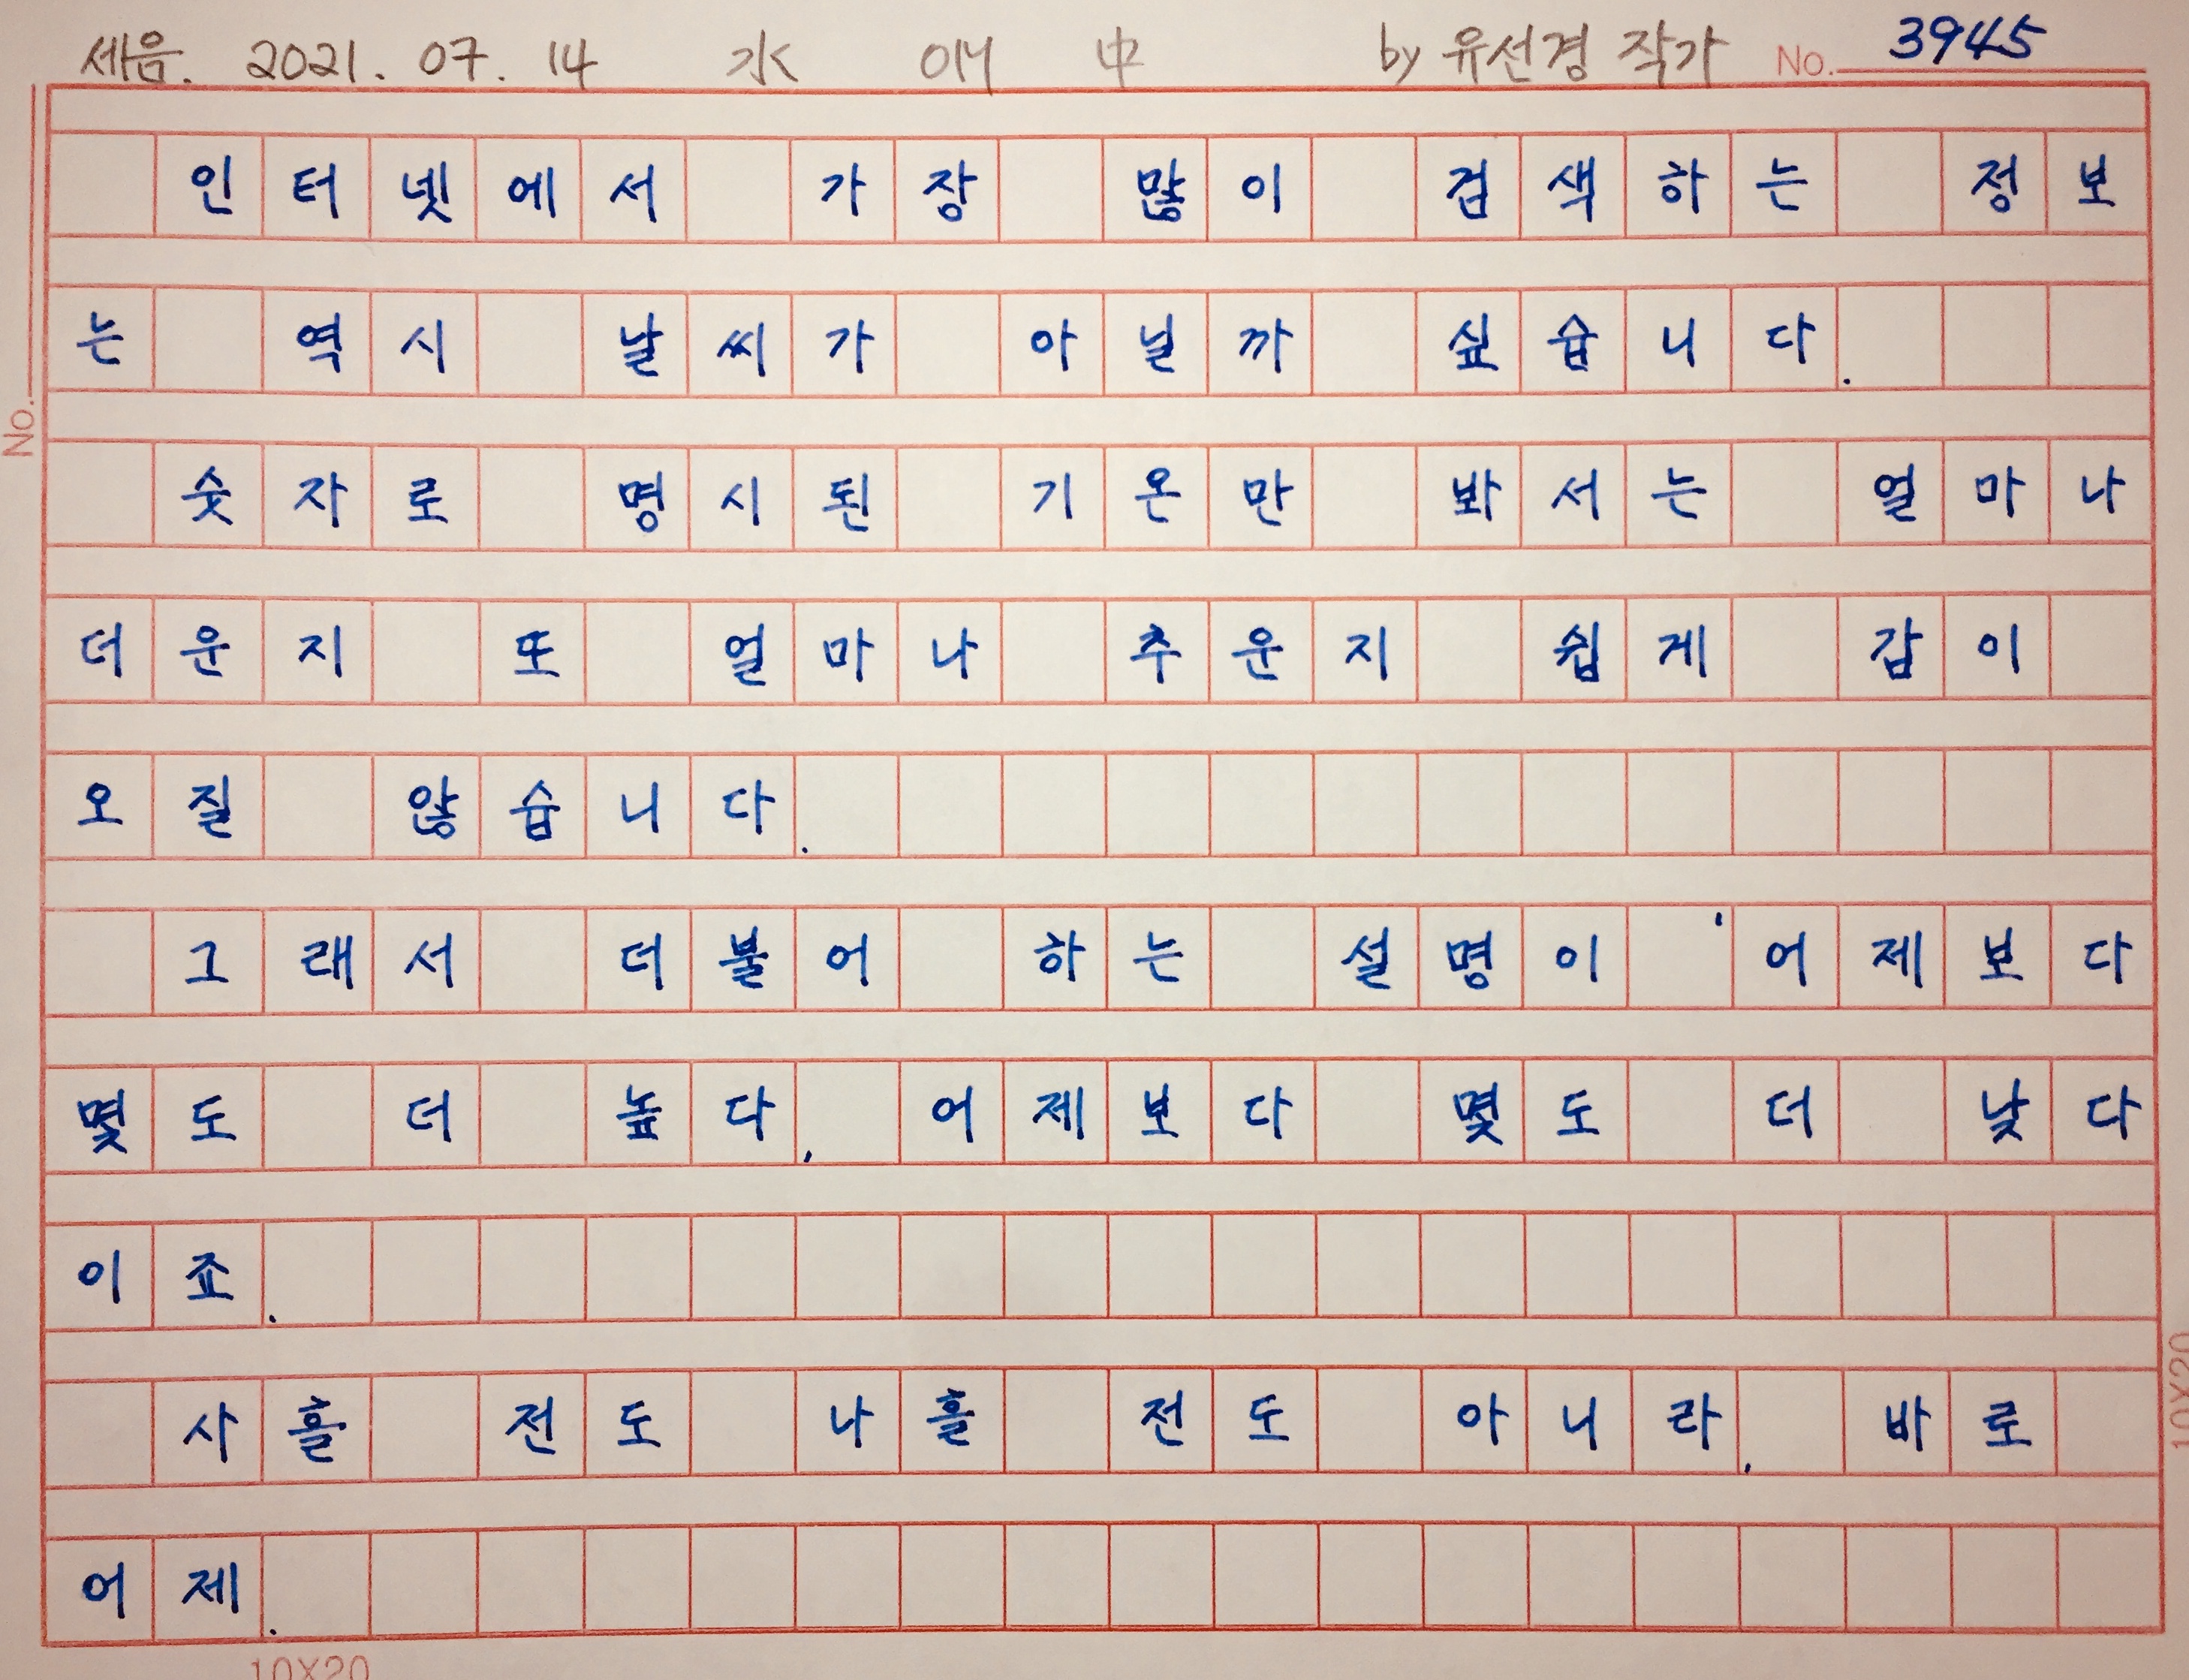 세음. 2021. 07. 14 水 에세이 中 by 유선경 작가 No. 3945
인터넷에서 가장 많이 검색하는 정보
는 역시 날씨가 아닐까 싶습니다.
숫자로 명시된 기온만 봐서는 얼마나
더운지 또 얼마나 추운지 쉽게 감이
오질 않습니다.
그래서 더불어 하는 설명이 '어제보다
몇도 더 높다, 어제보다 몇도 더 낮다
이죠.
사흘 전도 나흘 전도 아니라, 바로
어제.
No.
10X20
10X20